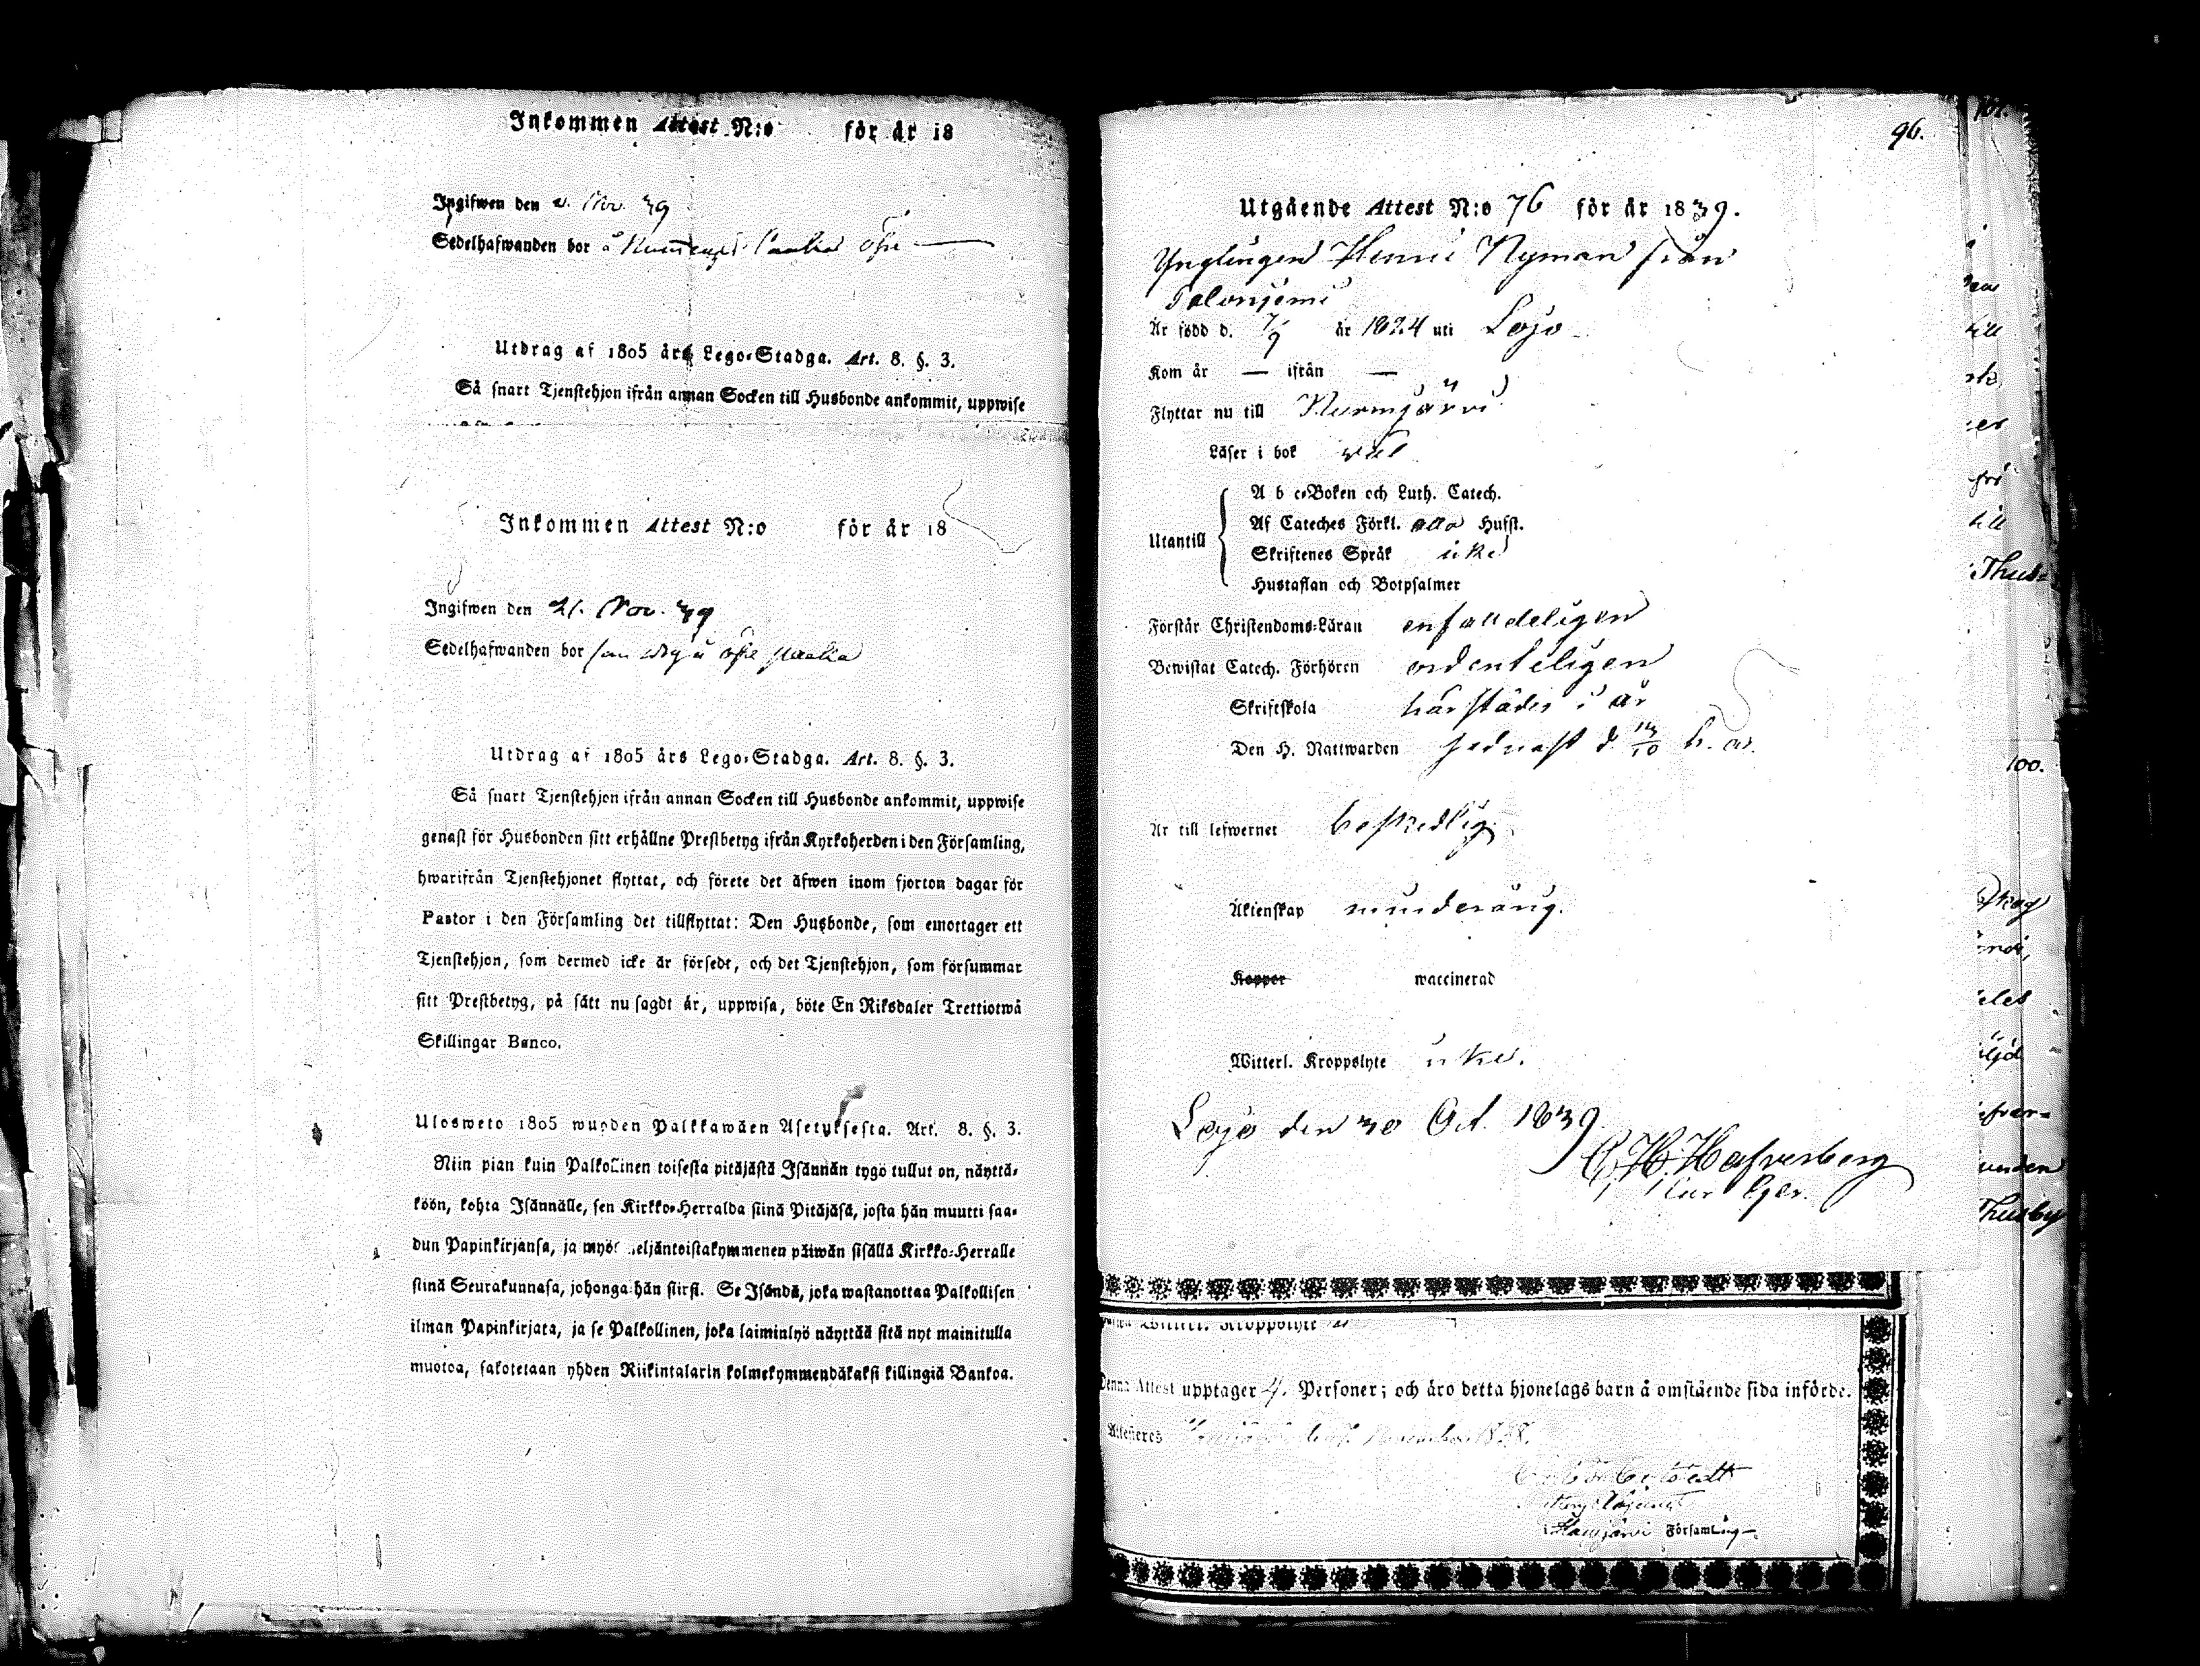 Inkommen Attest N:o för år 18
Ingifwen den 2. Nov. 39
Sedelhafwanden bor å
Utdrag af 1805 års Lego-Stadga. Art. 8. §. 3.
Så snart Tjenstehjon ifrån annan Socken till Husbonde ankommit, uppwise
Inkommen Attest N:o för år 18
Ingifwen den 21. Nov. 39
Sedelhafwanden bor
Utdrag af 1805 års Lego-Stadga. Art. 8. §. 3.
Så snart Tjenstehjon ifrån annan Socken till Husbonde ankommit, uppwise
genast för Husbonden sitt erhållne Prestbetyg ifrån Kyrkoherden i den Församling,
hwarifrån Tjenstehjonet flyttat, och förete det äfwen inom fjorton dagar för
Pastor i den Församling det tillflyttat: Den Husbonde, som emottager ett
Tjenstehjon, som dermed icke är försedt, och det Tjenstehjon, som försummar
sitt Prestbetyg, på sätt nu sagdt är, uppwisa, böte En Riksdaler Trettiotwå
Skillingar Banco.
Ulosweto 1805 wuoden Palkkawäen Asetuksesta. Art. 8. §. 3.
Niin pian kuin Palkollinen toisesta pitäjästä Isännän tygö tullut on, näyttä-
köön, kohta Isännälle, sen Kirkko-Herralda siinä Pitäjäsä, josta hän muutti saa-
dun Papinkirjansa, ja myös neljäntoistakymmenen päiwän sisällä Kirkko-Herralle
siinä Seurakunnasa, johonga hän siirsi. Se Isändä, joka wastanottaa Palkollisen
ilman Papinkirjata, ja se Palkollinen, joka laiminlyö näyttää sitä nyt mainitulla
muotoa, sakotetaan yhden Riikintalarin kolmekymmendäkaksi killingiä Bankoa.
96.
Utgående Attest N:o 76 för år 1839.
Ynglingen Henric Nyman från
Talonjemi
Är född d. 7/9 år 1824 uti Lojo
Kom år — ifrån —
Flyttar nu till Nurmijärvi
Läser i bok väl
Utantill
A b c-Boken och Luth. Catech.
Af Cateches Förkl. alla Husst.
Skriftenes Språk icke
Hustaflan och Botpsalmer
Förstår Christendoms-Läran enfaldeligen
Bewistat Catech. Förhören ordenteligen
Skriftskola härstädes i år
Den H. Nattwarden sednast d. 13/10 h. a.
Är till lefwernet beskedlig
Äktenskap minderårig.
Koppor waccinerad
Witterl. Kroppslyte icke.
Lojo den 30 Oct. 1839.
C. H. Hafverberg
Denna Attest upptager 4. Personer; och äro detta hjonelags barn å omstående sida införde.
Attesteres
Församling
101.
till
till
Thus-
100.
Thusby